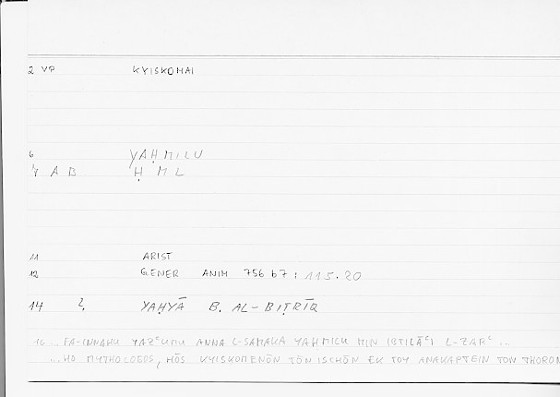 2 VP KYISKOMAI
6 YAḤMILU
7 A B Ḥ M L
11 ARIST
12 GENER ANIM 756 b7 : 115.20
14 YAḤYĀ B. AL-BIṬRĪQ
16 ... FA-INNAHU YAZʿUMU ANNA L-SAMAKA YAḤMILU MIN IBTILĀʿI L-ZARʿ ..
... HO MYTHOLOGOS, HŌS KYISKOMENŌN TŌN ISCHŌN EK TOY ANAKAPTEIN TON THORON